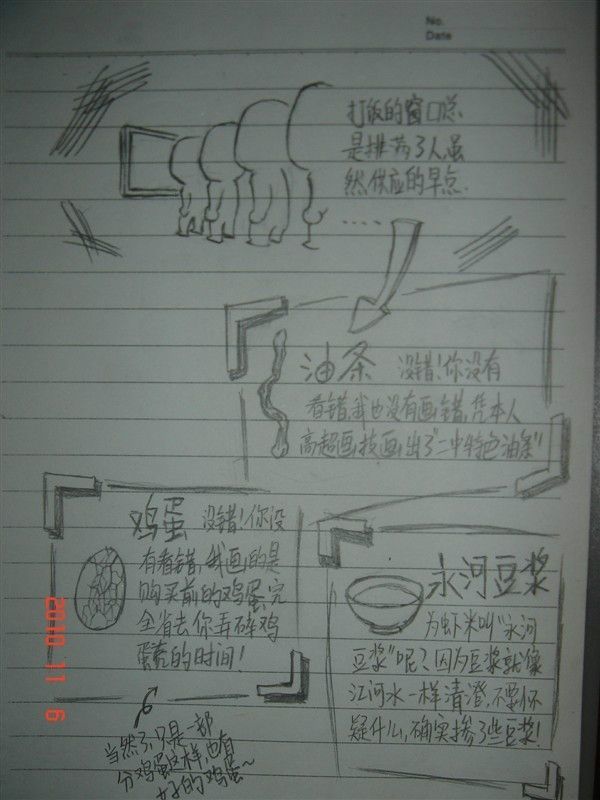 No.
Date
打饭的窗口总
是挤满了人虽
然供应的早点
……
油条 没错!你没有
看错,我也没有画错,凭本人
高超画技画出了"二中特色油条"
鸡蛋 没错!你没
有看错,我画的是
购买前的鸡蛋完
全省去你弄碎鸡
蛋壳的时间!
当然了,只是一部
分鸡蛋这样,也有
好的鸡蛋~
永河豆浆
为虾米叫"永河
豆浆"呢?因为豆浆就像
江河水一样清澄,不要怀
疑什么,确实掺了些豆浆!
2010 11 6